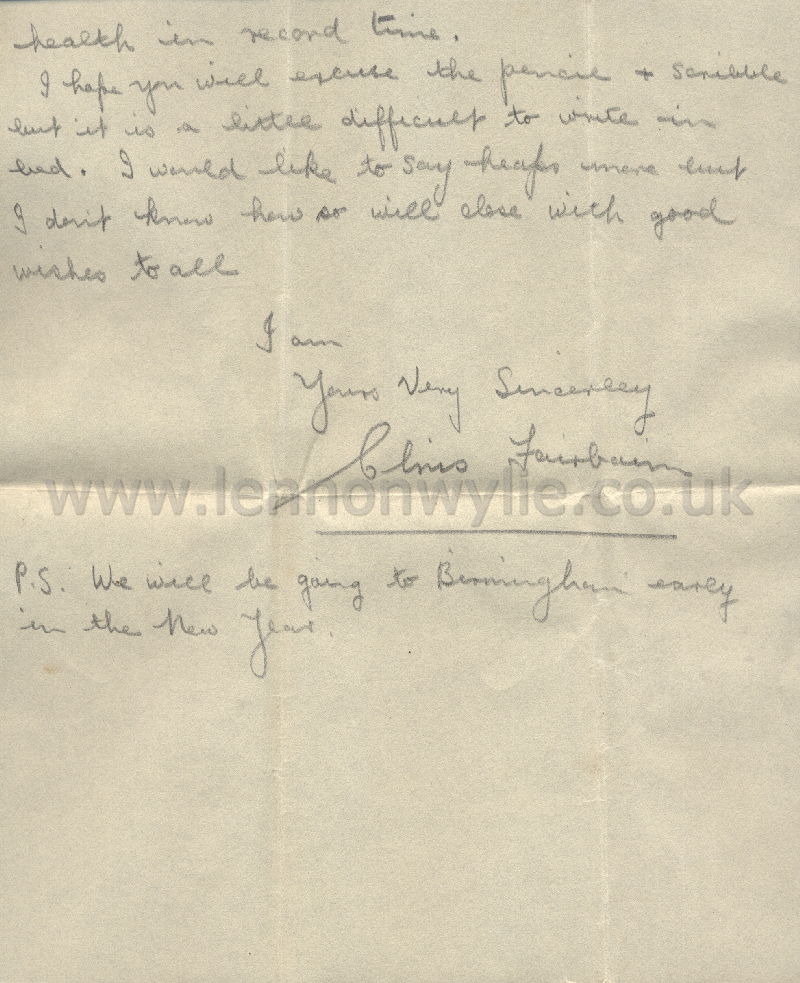 health in record time.
I hope you will excuse the pencil + scribble
but it is a little difficult to write in
bed. I would like to say heaps more but
I don't know how so will close with good
wishes to all
I am
Yours Very Sincerley
Chris Fairbairn
www.lennonwylie.co.uk
P.S. We will be going to Birmingham early
in the New Year.